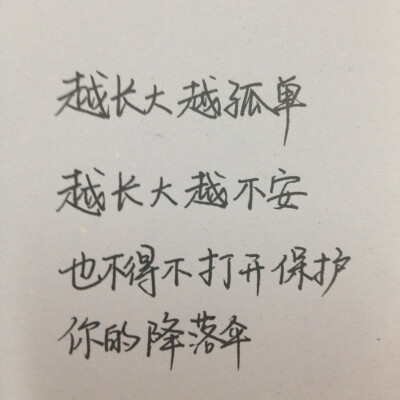 越长大越孤单
越长大越不安
也不得不打开保护
你的降落伞